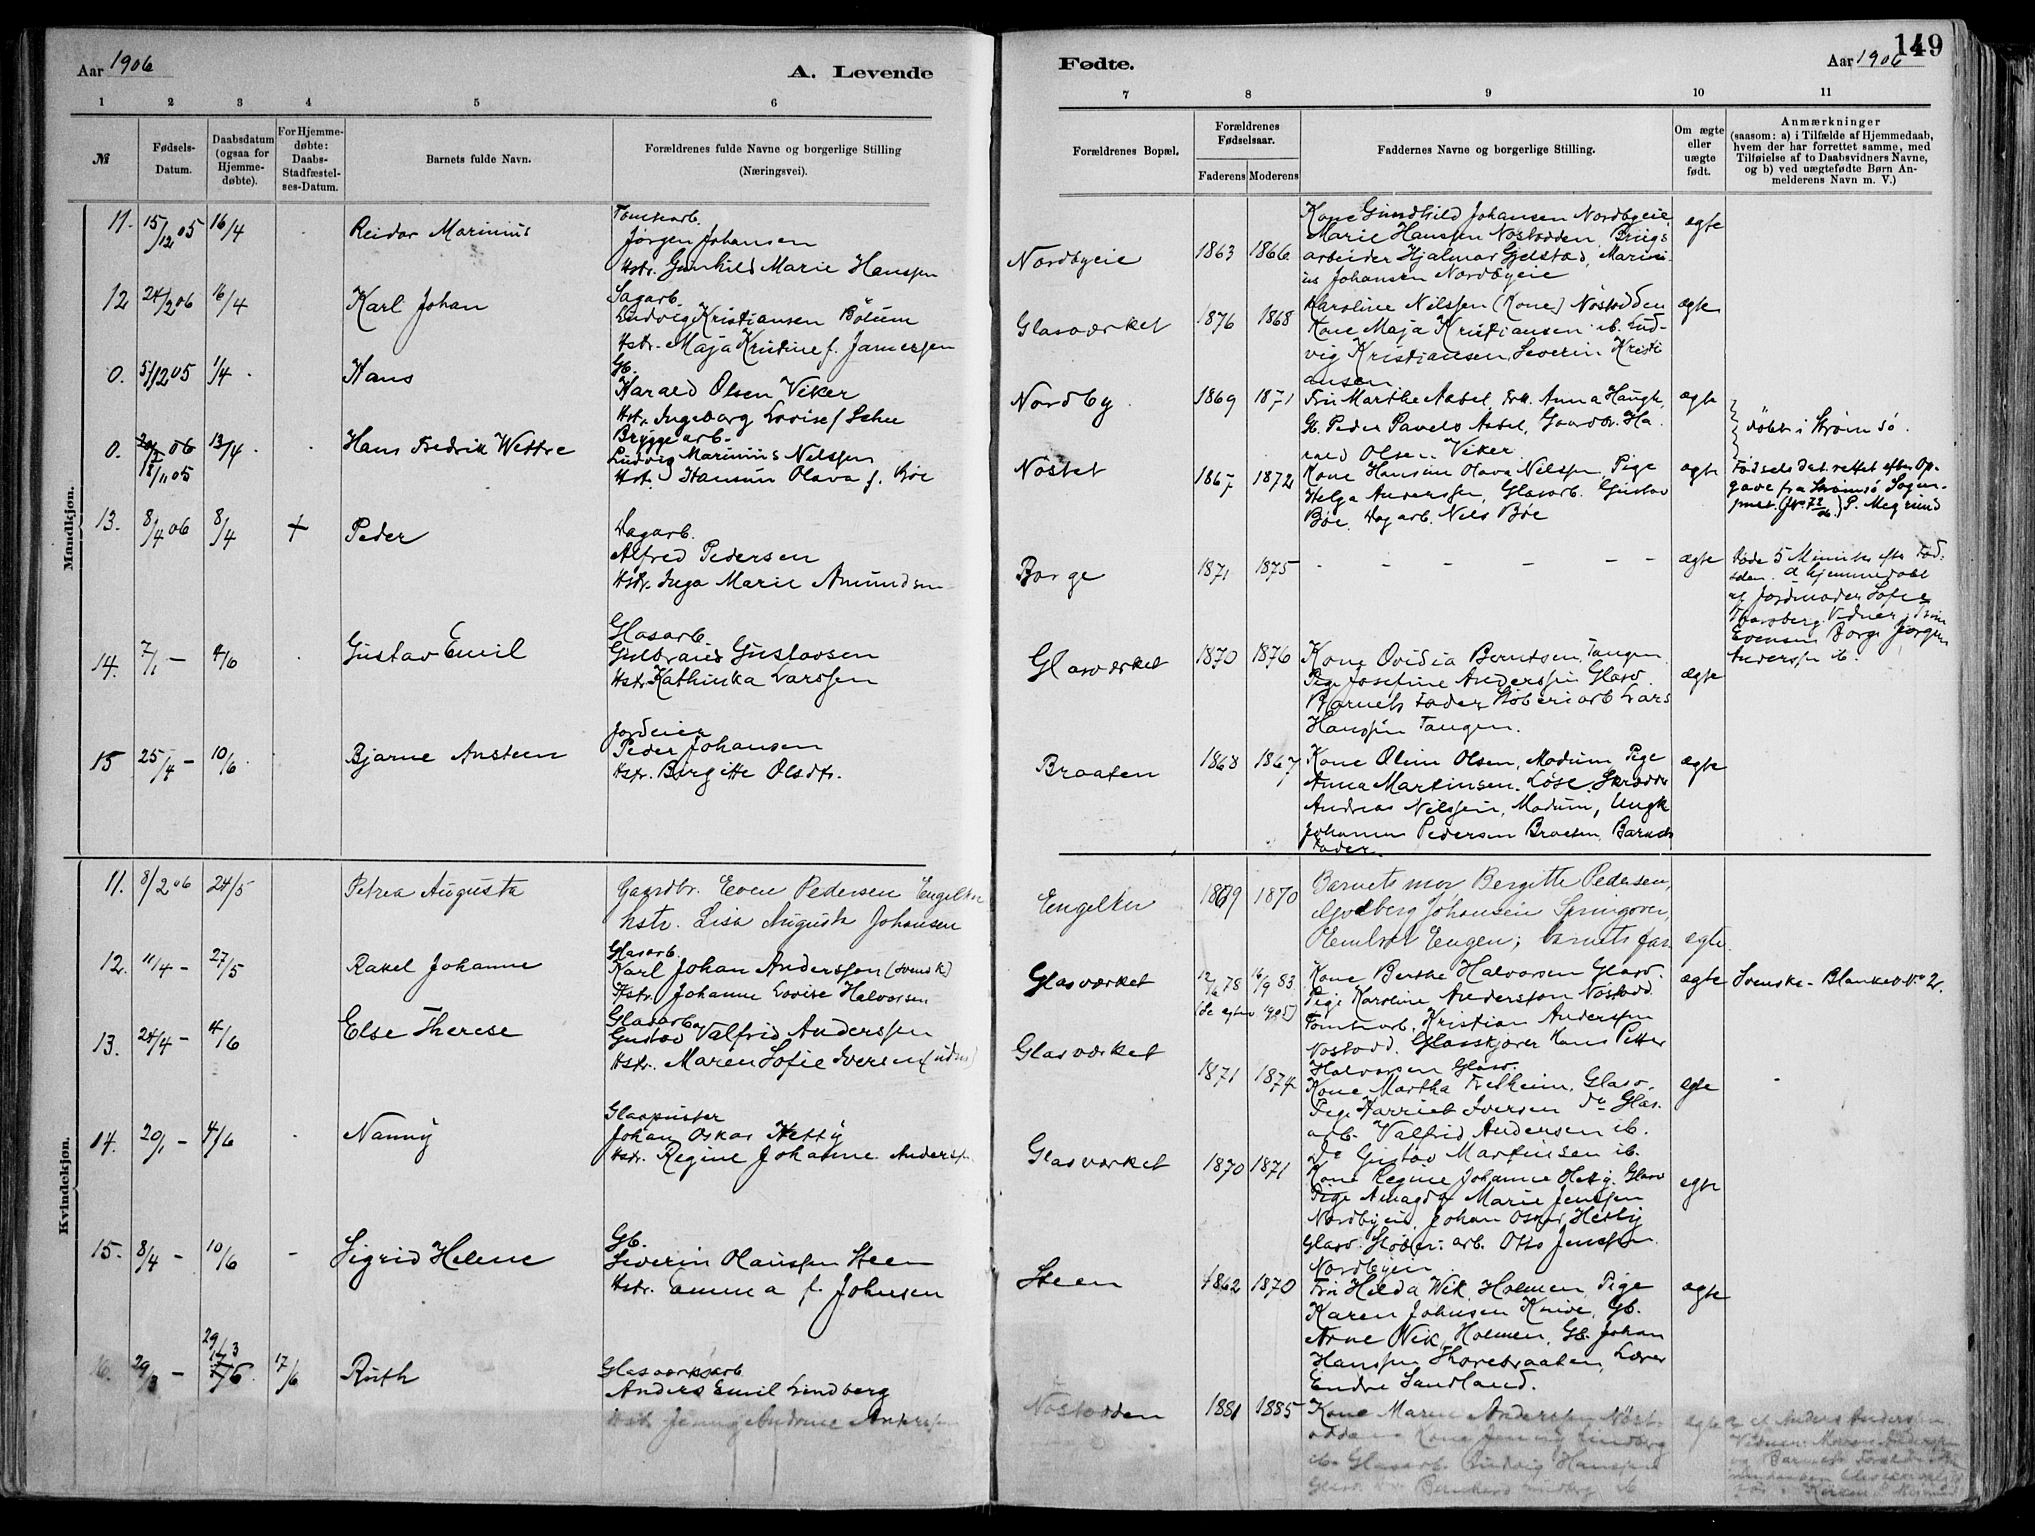 149
Aar 1906
A. Levende
Fødte.
Aar 1906
1 2 3 4 5 6
7 8 9 10 11
№
Fødsels-
Datum.
Daabsdatum
(ogsaa for
Hjemme-
døbte).
For Hjemme-
døbte:
Daabs-
Stadfæstel-
ses-Datum.
Barnets fulde Navn.
Forældrenes fulde Navne og borgerlige Stilling
(Næringsvei).
Forældrenes Bopæl.
Forældrenes
Fødselsaar.
Faderens Moderens
Faddernes Navne og borgerlige Stilling.
Om ægte
eller
uægte
født.
Anmærkninger
(saasom: a) i Tilfælde af Hjemmedaab,
hvem der har forrettet samme, med
Tilføielse af to Daabsvidners Navne,
og b) ved uægtefødte Børn An-
melderens Navn m. V.)
Mandkjøn.
11. 15/12 05 16/4 Reidar Marinius
Tomtearb.
Jørgen Johansen
Hstr. Gunhild Marie Hanssen
Nordbyeie 1863 1866
Kone Gundhild Johansen Nordbyeie
Marie Hanssen Nøstodden, Brugs
arbeider Hjalmar Gjelstad, Marini
us Johansen Nordbyeie
ægte
12 24/2 06 16/4 Karl Johan
Sagarb.
Ludvig Kristiansen Bölum
Hstr. Maja Kristine f. Jamersen
Glasværket 1876 1868
Karoline Nilssen (Kone) Nöstodden
Kone Maja Kristiansen ib. Lud-
vig Kristiansen, Severin Kristi
ansen
ægte
0. 5/12 05 1/4 Hans
Gb.
Harald Olsen Viker
Hstr. Ingeborg Lovise f. Schee
Nordby 1869 1871
Fru Marthe Aabel, Frk. Anna Haugh,
Gb. Peder Pavels Aabel, Gaardbr. Ha
rald Olsen Viker
ægte
döbt i Strömsö.
0. 18/11 05 13/4 Hans Fredrik Wettre
Bryggearb.
Ludvig Marinius Nilssen
Hst. Hansine Olava f. Böe
Nöstet 1867 1872
Kone Hansine Olava Nilssen, Pige
Helga Anderssen, Glasarb. Gustav
Böe, Dagarb. Nils Böe
ægte
Fødselsdat. rettet efter Op-
gave fra Strömsö Sogne-
13. 8/4 06 8/4 + Peder
Dagarb.
Alfred Pedersen
Hstr. Inga Marie Amundsen
Borge 1871 1875 - - - - - -
ægte
Döde 5 Minuter efter Föd-
selen. Hjemmedøbt
af Jordmoder Sofie
Evensen Borge Jørgen
Anderssen ib.
14. 7/1 - 4/6 Gustav Emil
Glasarb.
Gulbrand Gustavsen
Hstr. Kathinka Larssen
Glasværket 1870 1876
Kone Ovidia Berntsen, Tangen
Pige Josefine Anderssen Glasv.
Barnets Fader, Støberiarb Lars
Hanssen Tangen.
ægte
15 25/4 - 10/6 Bjarne Ansteen
Jordeier
Peder Johansen
Hstr. Borgitte Olsdtr.
Braaten 1868 1867
Kone Oline Olsen, Modum, Pige
Anna Martinsen, Løse, Skrædder
Andreas Nilssen, Modum, Ungk
Johannes Pedersen Braaten, Barnets
Fader.
ægte
Kvindekjøn.
11. 8/2 06 24/5 Petrea Augusta
Gaardbr. Even Pedersen Engelker
hstr. Lisa Augusta Johansen
Engelker 1869 1870
Barnets mor, Bergitte Pedersen,
Engen; barnets far
ægte.
12. 11/4 - 27/5 Rakel Johanne
Glasarb.
Karl Johan Anderssen (svensk)
Hstr. Johanne Lovise Halvorsen
Glasværket 12/6 78 16/9 83
Kone Berthe Halvorsen Glasv.
Pige Karoline Andersson Nöstodd.
Tomtearb. Kristian Anderssen
Nöstodd. Glasskjører Hans Petter
Halvorsen Glasv.
ægte
Svenske - Blanket No 2.
13. 24/4 - 4/6 Else Therese
Glasarb.
Gustav Valfrid Anderssen
Hstr. Maren Sofie Iversen
Glasværket 1871 1874
Kone Martha Fretheim, Glasv.
Pige Harriet Iversen do Glas.
arb. Valfrid Andersen ib.
do Gustav Martinsen ib.
egte
14. 20/1 - 4/6 Nanny
Glaspuster
Johan Oskar Hetty
Hstr. Regine Johanne Anderssen
Glasværket 1870 1871
Kone Regine Johanne Hetty. Glasv
Pige Amagda Marie Jenssen
Nordbyeie, Johan Oskar Hetty
Glasv. Støberiarb. Otto Jenssen
Nordbyeie
egte
15. 8/4 - 10/6 - Sigrid Helene
Gb.
Severin Olaussen Steen
Hstr. Emma f. Johnsen
Steen 1862 1870
Fru Hilda Wik, Holmen, Pige
Karen Johnsen Knive, Gb.
Arne Wik, Holmen, Gb. Johan
Hanssen Thorebraaten, Lærer
Endre Sandland.
ægte
16. 29/3 - 29/3 17/6 Ruth
Glasværksarb
Anders Emil Lindberg
Hstr. Jenny Andrine Anderssen
Nöstodden 1881 1885
Kone Maren Anderssen Nöst-
odden, Kone Jenny Lindberg
ib. Glasarb. Ludvig Hanssen
egte